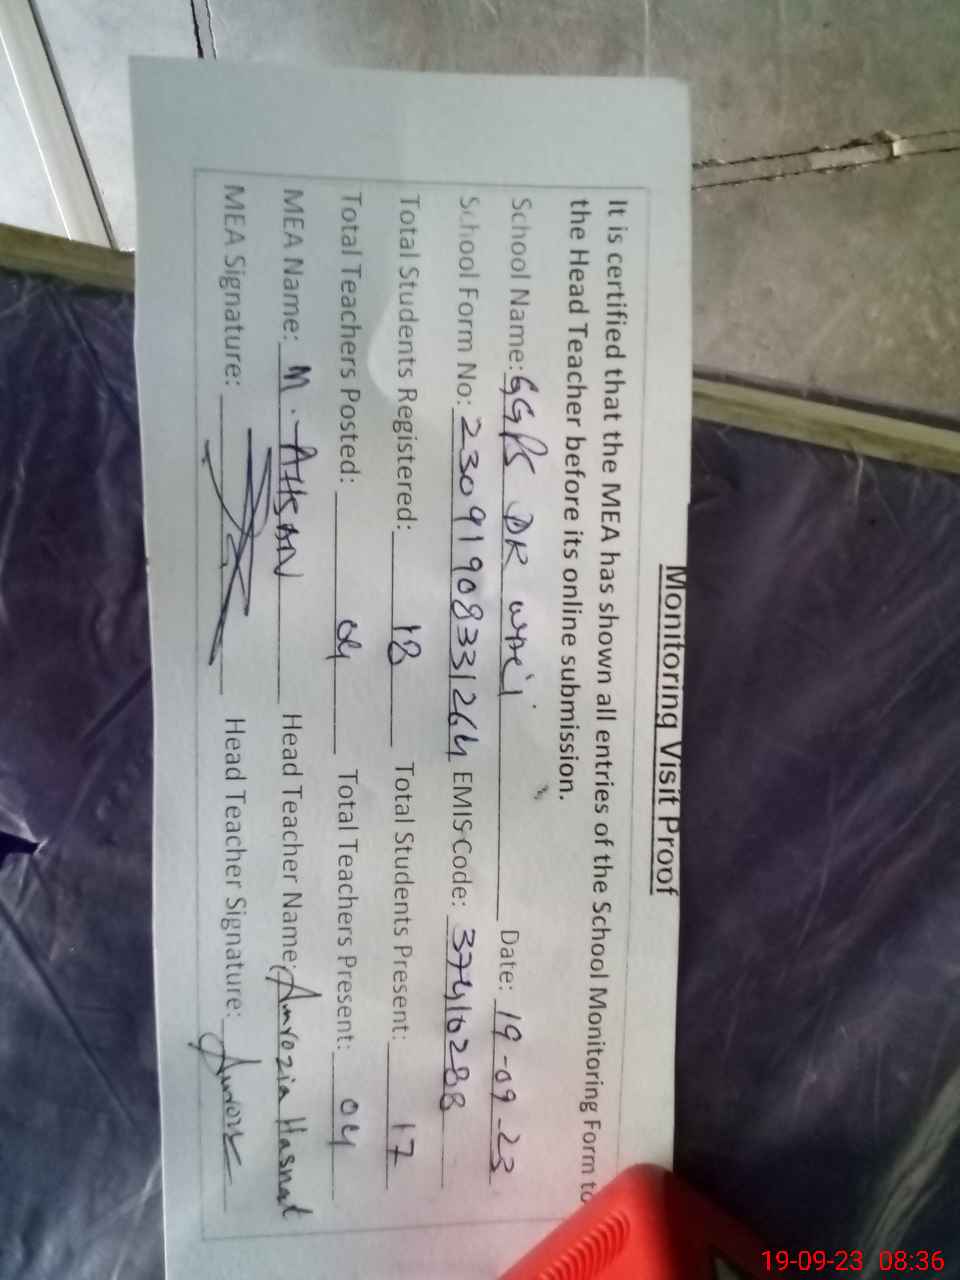 Monitoring Visit Proof
It is certified that the MEA has shown all entries of the School Monitoring Form to
the Head Teacher before its online submission.
School Name: GGPS DK Date: 19-09-23
School Form No: 23091908331264 EMIS Code: 37410288
Total Students Registered: 18 Total Students Present: 17
Total Teachers Posted: 04 Total Teachers Present: 04
MEA Name: M. AHSAN Head Teacher Name: Amrozia Hasnat
MEA Signature: Head Teacher Signature:
19-09-23 08:36